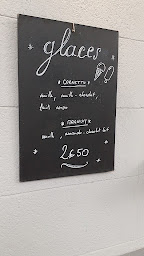 glaces
CORNETTO
vanille, vanille-chocolat,
MAGNUM
vanille, amande, chocolat lait
2€50